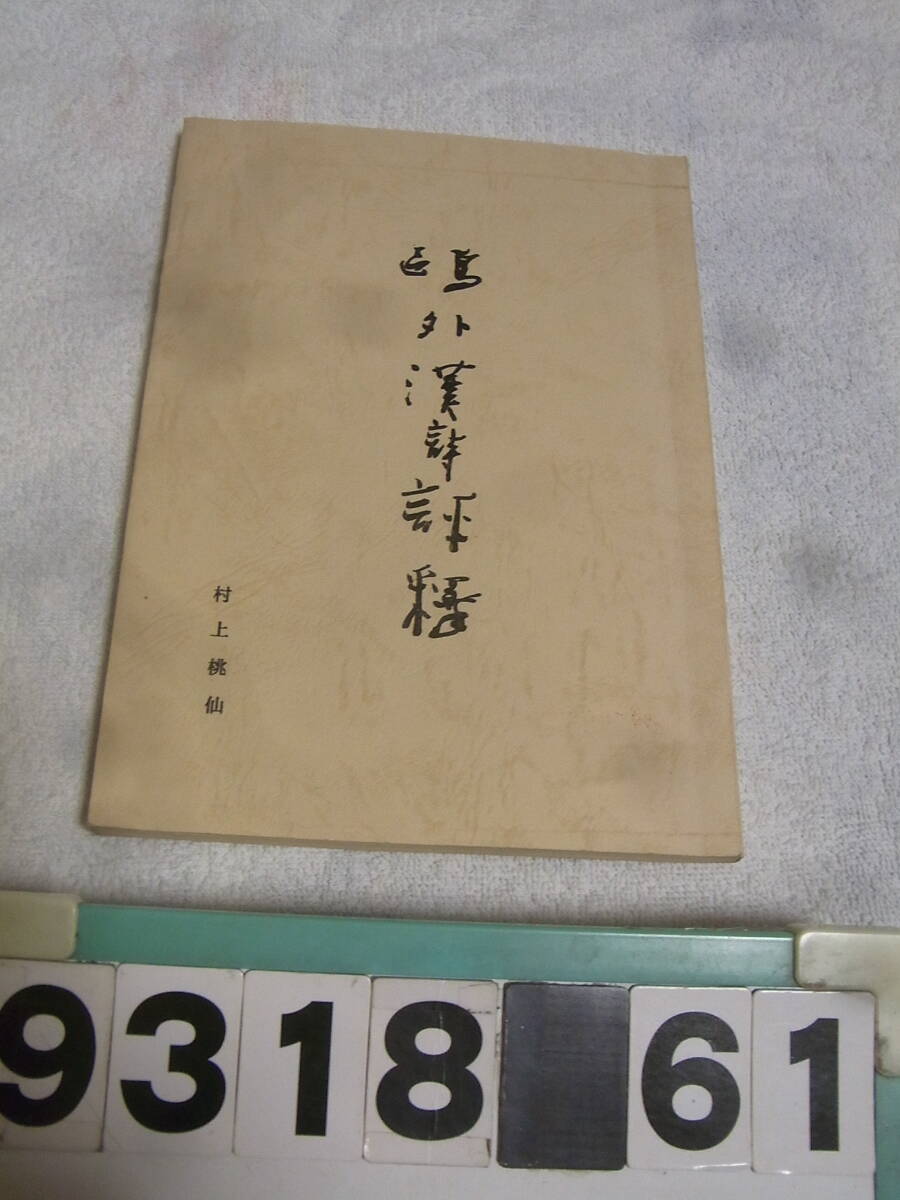 鴎外漢詩評釋
村上桃仙
9318 61